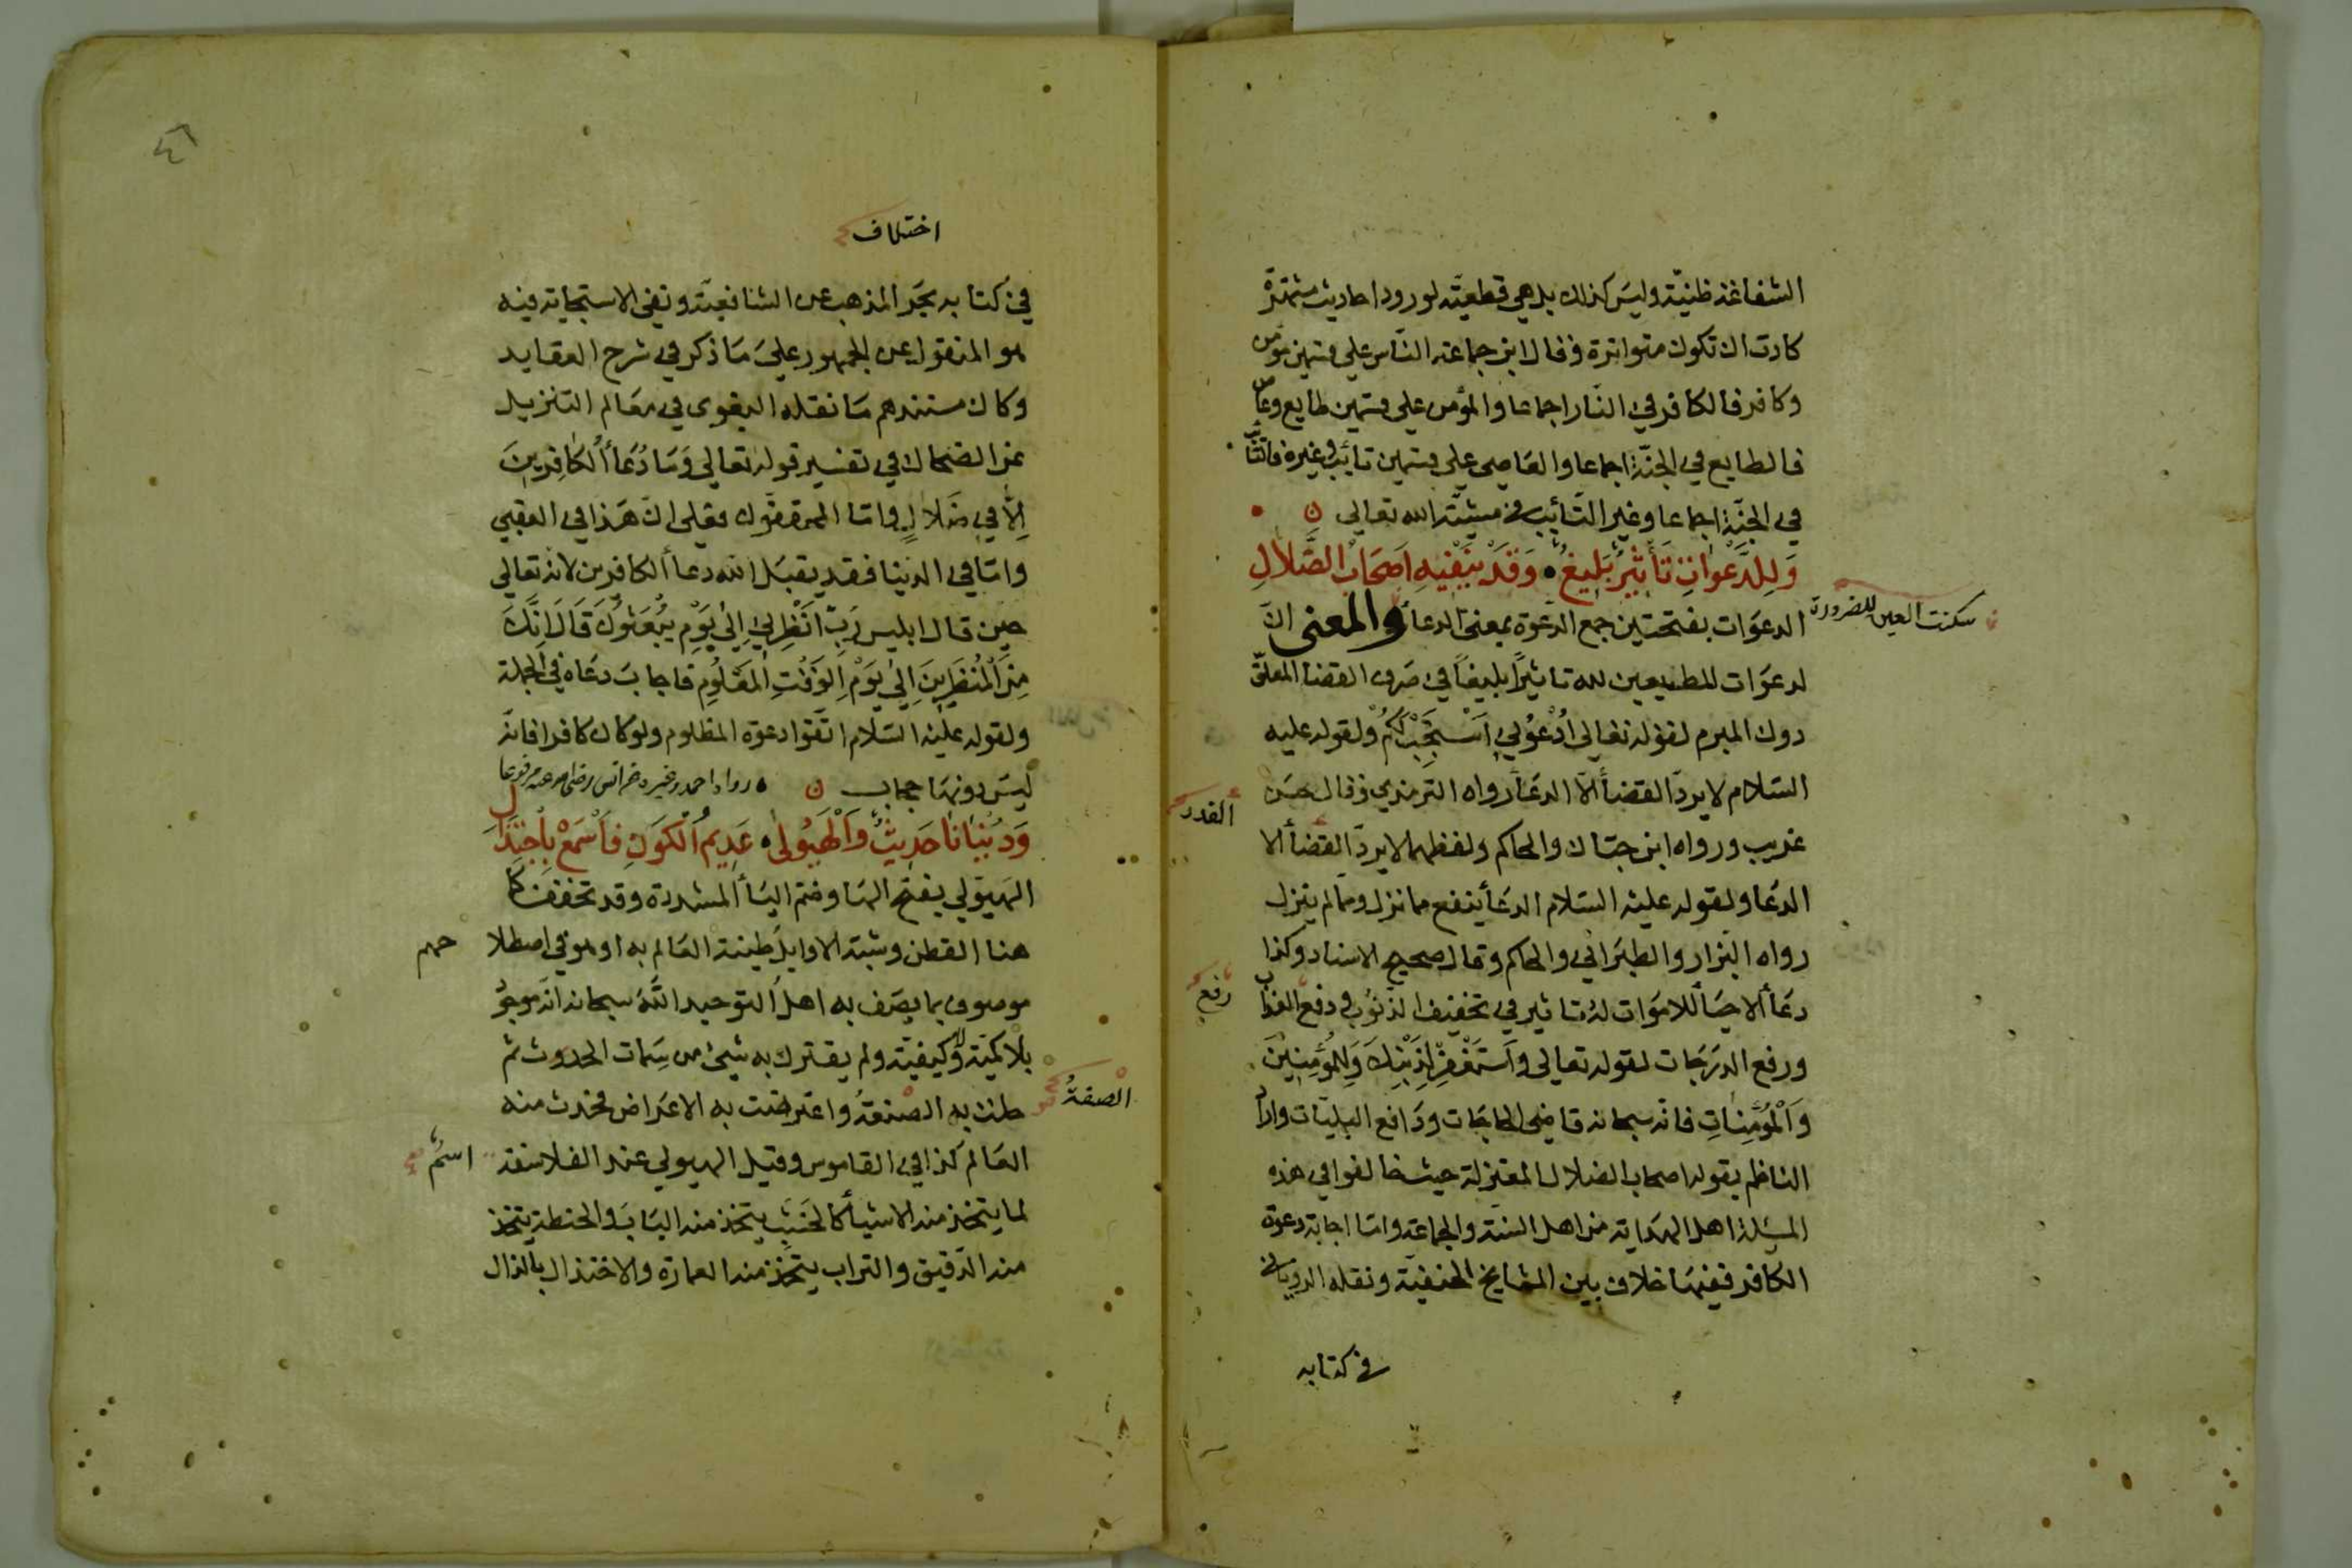 الشفاعة ظنية وليس كذلك بل هي قطعية لورود احاديث مشتهرة
كادت ان تكون متواترة وقال ابن جماعة الناس على قسمين مؤمن
وكافر فالكافر في النار اجماعا والمؤمن على قسمين طايع وعاص
فالطايع في الجنة اجماعا والعاصي على قسمين تائب وغيره فالتائب
في الجنة اجماعا وغير التائب في مشيئة الله تعالى ن
وَلِلدَّعْوَاتِ تَأْثِيرٌ بَلِيغٌ وَقَدْ يَنْفِيهِ اَصْحَابُ الضَّلَالِ
سكنت العين للضرورة
الدعوات بفتحتين جمع الدعوة بمعنى الدعأ والمعنى ان
لدعوات للمطيعين لله تاثيرًا بليغًا في صرف القضا المعلق
دون المبرم لقوله تعالى اُدْعُونِي اَسْتَجِبْ لَكُمْ ولقوله عليه
السلام لا يرد القضأ الا الدعأ رواه الترمذي وقال حسن
القدر
غريب ورواه ابن حبان والحاكم ولفظهما لا يرد القضأ الا
الدعا ولقوله عليه السلام الدعأ ينفع مما نزل ومما لم ينزل
رواه البزار والطبراني والحاكم وقال صحيح الاسناد وكذا
دعأ الاحيأ للاموات له تاثير في تخفيف الذنوب و دفع العذاب
رفع
ورفع الدرجات لقوله تعالى وَاسْتَغْفِرْ لِذَنْبِكَ وَلِلْمُؤْمِنِينَ
وَالْمُؤْمِنَاتِ فانه سبحانه قاضي الحاجات ودافع البليات واراد
الناظم بقوله اصحاب الضلال المعتزلة حيث خالفوا في هذه
المسئلة اهل الهداية من اهل السنة والجماعة واما اجابة دعوة
الكافر ففيها خلاف بين المشايخ الحنفية ونقله الروياني
في كتابه
٤٦
اختلاف
في كتابه بحر المذهب عن الشافعية ونفي الاستجابة فيه
هو المنقول عن الجمهور على ما ذكر في شرح العقايد
وكان مستندهم ما نقله البغوى في معالم التنزيل
عن الضحاك في تفسير قوله تعالى وَمَا دُعَأُ الْكَافِرِينَ
اِلَّا فِي ضَلَالٍ واما المحققون فعلى ان هذا في العقبي
واما في الدنيا فقد يقبل الله دعأ الكافرين لانه تعالى
حين قال ابليس رَبِّ اَنْظِرْنِي اِلَى يَوْمِ يُبْعَثُونَ قَالَ اِنَّكَ
مِنَ الْمُنْظَرِينَ اِلَى يَوْمِ الْوَقْتِ الْمَعْلُومِ فاجاب دعاه في الجملة
ولقوله عليه السلام اتقوا دعوة المظلوم ولو كان كافرا فانه
ليس دونها حجاب ن رواه احمد وغيره عن انس رضى الله عنه مرفوعا
وَدُنْيَانَا حَدِيثٌ وَالْهَيُولَى عَدِيمُ الْكَوْنِ فَاسْمَعْ بِاجْتِذَالِ
الهيولي بفتح الها وضم اليأ المشددة وقد تخفف كما
هنا القطن وشبه الاوايل طينة العالم به او هو في اصطلا
حهم
موصوف بما يصف به اهل التوحيد الله سبحانه انه موجود
بلا كمية ولا كيفية ولم يقترن به شيئ من سمات الحدوث ثم
حلت به الصنعة واعترضت به الاعراض فحدث منه
الصفة
العالم كذا في القاموس وقيل الهيولي عند الفلاسفة
اسم
لما يتخذ منه الاشيأ كالخشب يتخذ منه الباب والحنطة يتخذ
منه الدقيق والتراب يتخذ منه العمارة والاختذال بالذال